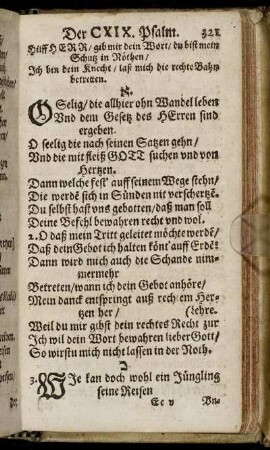 Der CXIX. Psalm. 321
Hilff HERR / gib mir dein Wort / du bist mein
Schutz in Nöthen /
Ich bin dein Knecht / laß mich die rechte Bahn
betretten.
א.
O Selig / die allhier ohn Wandel leben
Vnd dem Gesetz des HErren sind
ergeben.
O seelig die nach seinen Satzen gehn /
Vnd die mit fleiß GOTT suchen vnd von
Hertzen.
Dann welche fest' auff seinem Wege stehn /
Die werdē sich in Sünden nit verschertzē.
Du selbst hast vns gebotten / daß man soll
Deine Befehl bewahren recht vnd wol.
2. O daß mein Tritt geleitet möchte werdē /
Daß dein Gebot ich halten könt' auff Erdē!
Dann wird mich auch die Schande nim-
mermehr
Betreten / wann ich dein Gebot anhöre /
Mein danck entspringt auß rechtem Her-
tzen her / (Lehre.
Weil du mir gibst dein rechtes Recht zur
Ich wil dein Wort bewahren lieber Gott /
So wirstu mich nicht lassen in der Noth.
ב
3. WJe kan doch wohl ein Jüngling
seine Reisen
Ee v Vn-